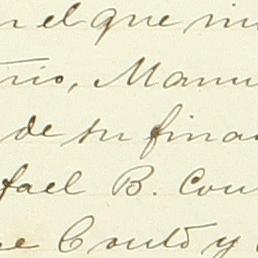 el que
rio, Manu
de su fina
fael B. Cou
Could y